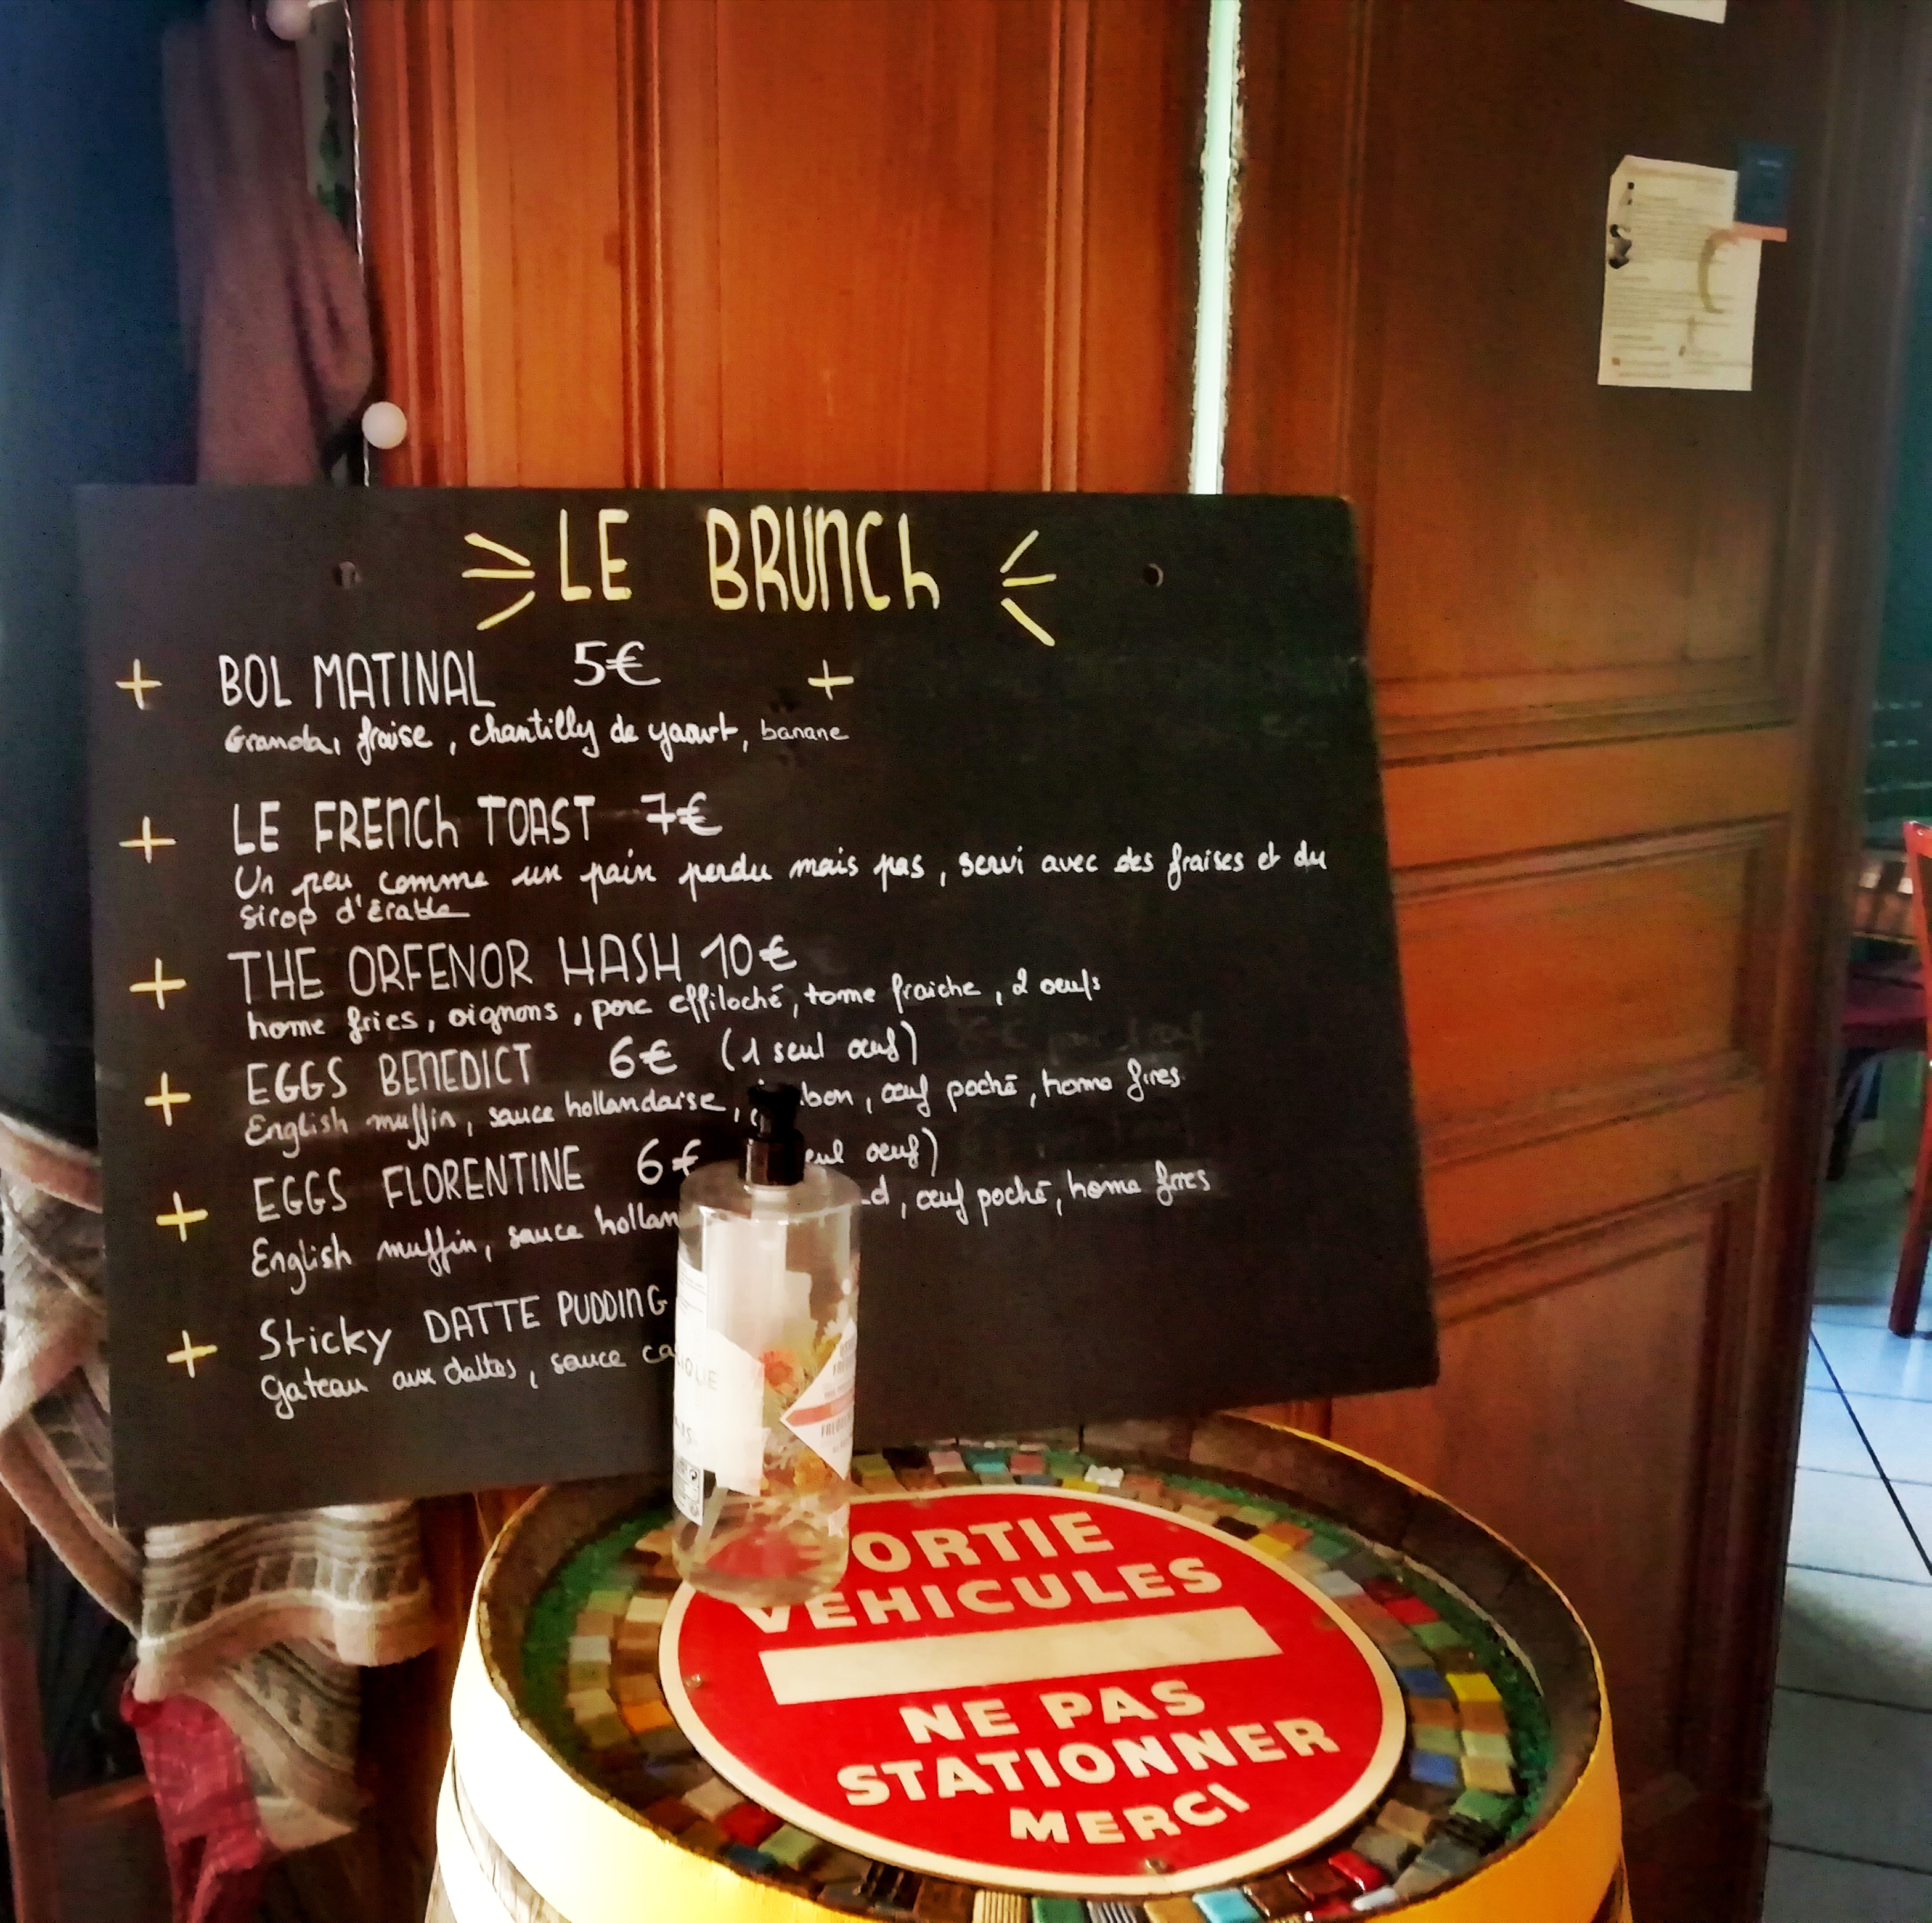 LE BRUNCh
+ BOL MATINAL 5€ +
Granola, fraise, chantilly de yaourt, banane
+ LE FRENCh TOAST 7€
Un peu comme un pain perdu mais pas, servi avec des fraises et du
sirop d'érable
+ THE ORFENOR HASH 10€
home fries, oignons, porc effiloché, tome fraiche, 2 oeufs
+ EGGS BENEDICT 6€ (1 seul œuf)
English muffin, sauce hollandaise, œuf poché, home fires
+ EGGS FLORENTINE 6€ oeuf)
English muffin, sauce œuf poché, home fries
+ Sticky DATTE PUDDING
Gateau aux dattes, sauce
ORTIE
VEHICULES
NE PAS
STATIONNER
MERCI